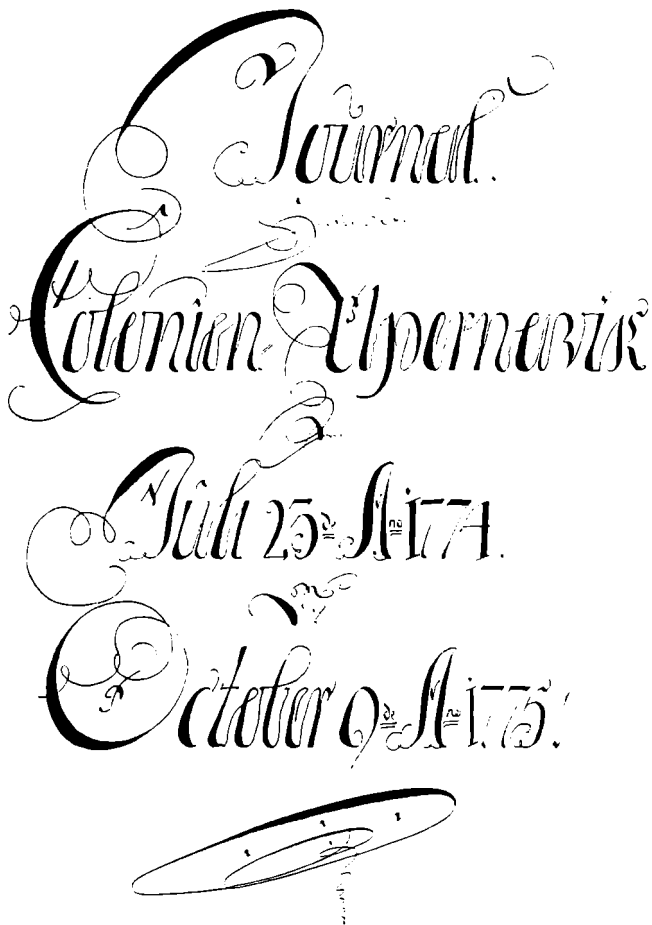 Journal.
Colonien Upernewik
Juli 25de Ano 1774.
October 9de Ano 1775.